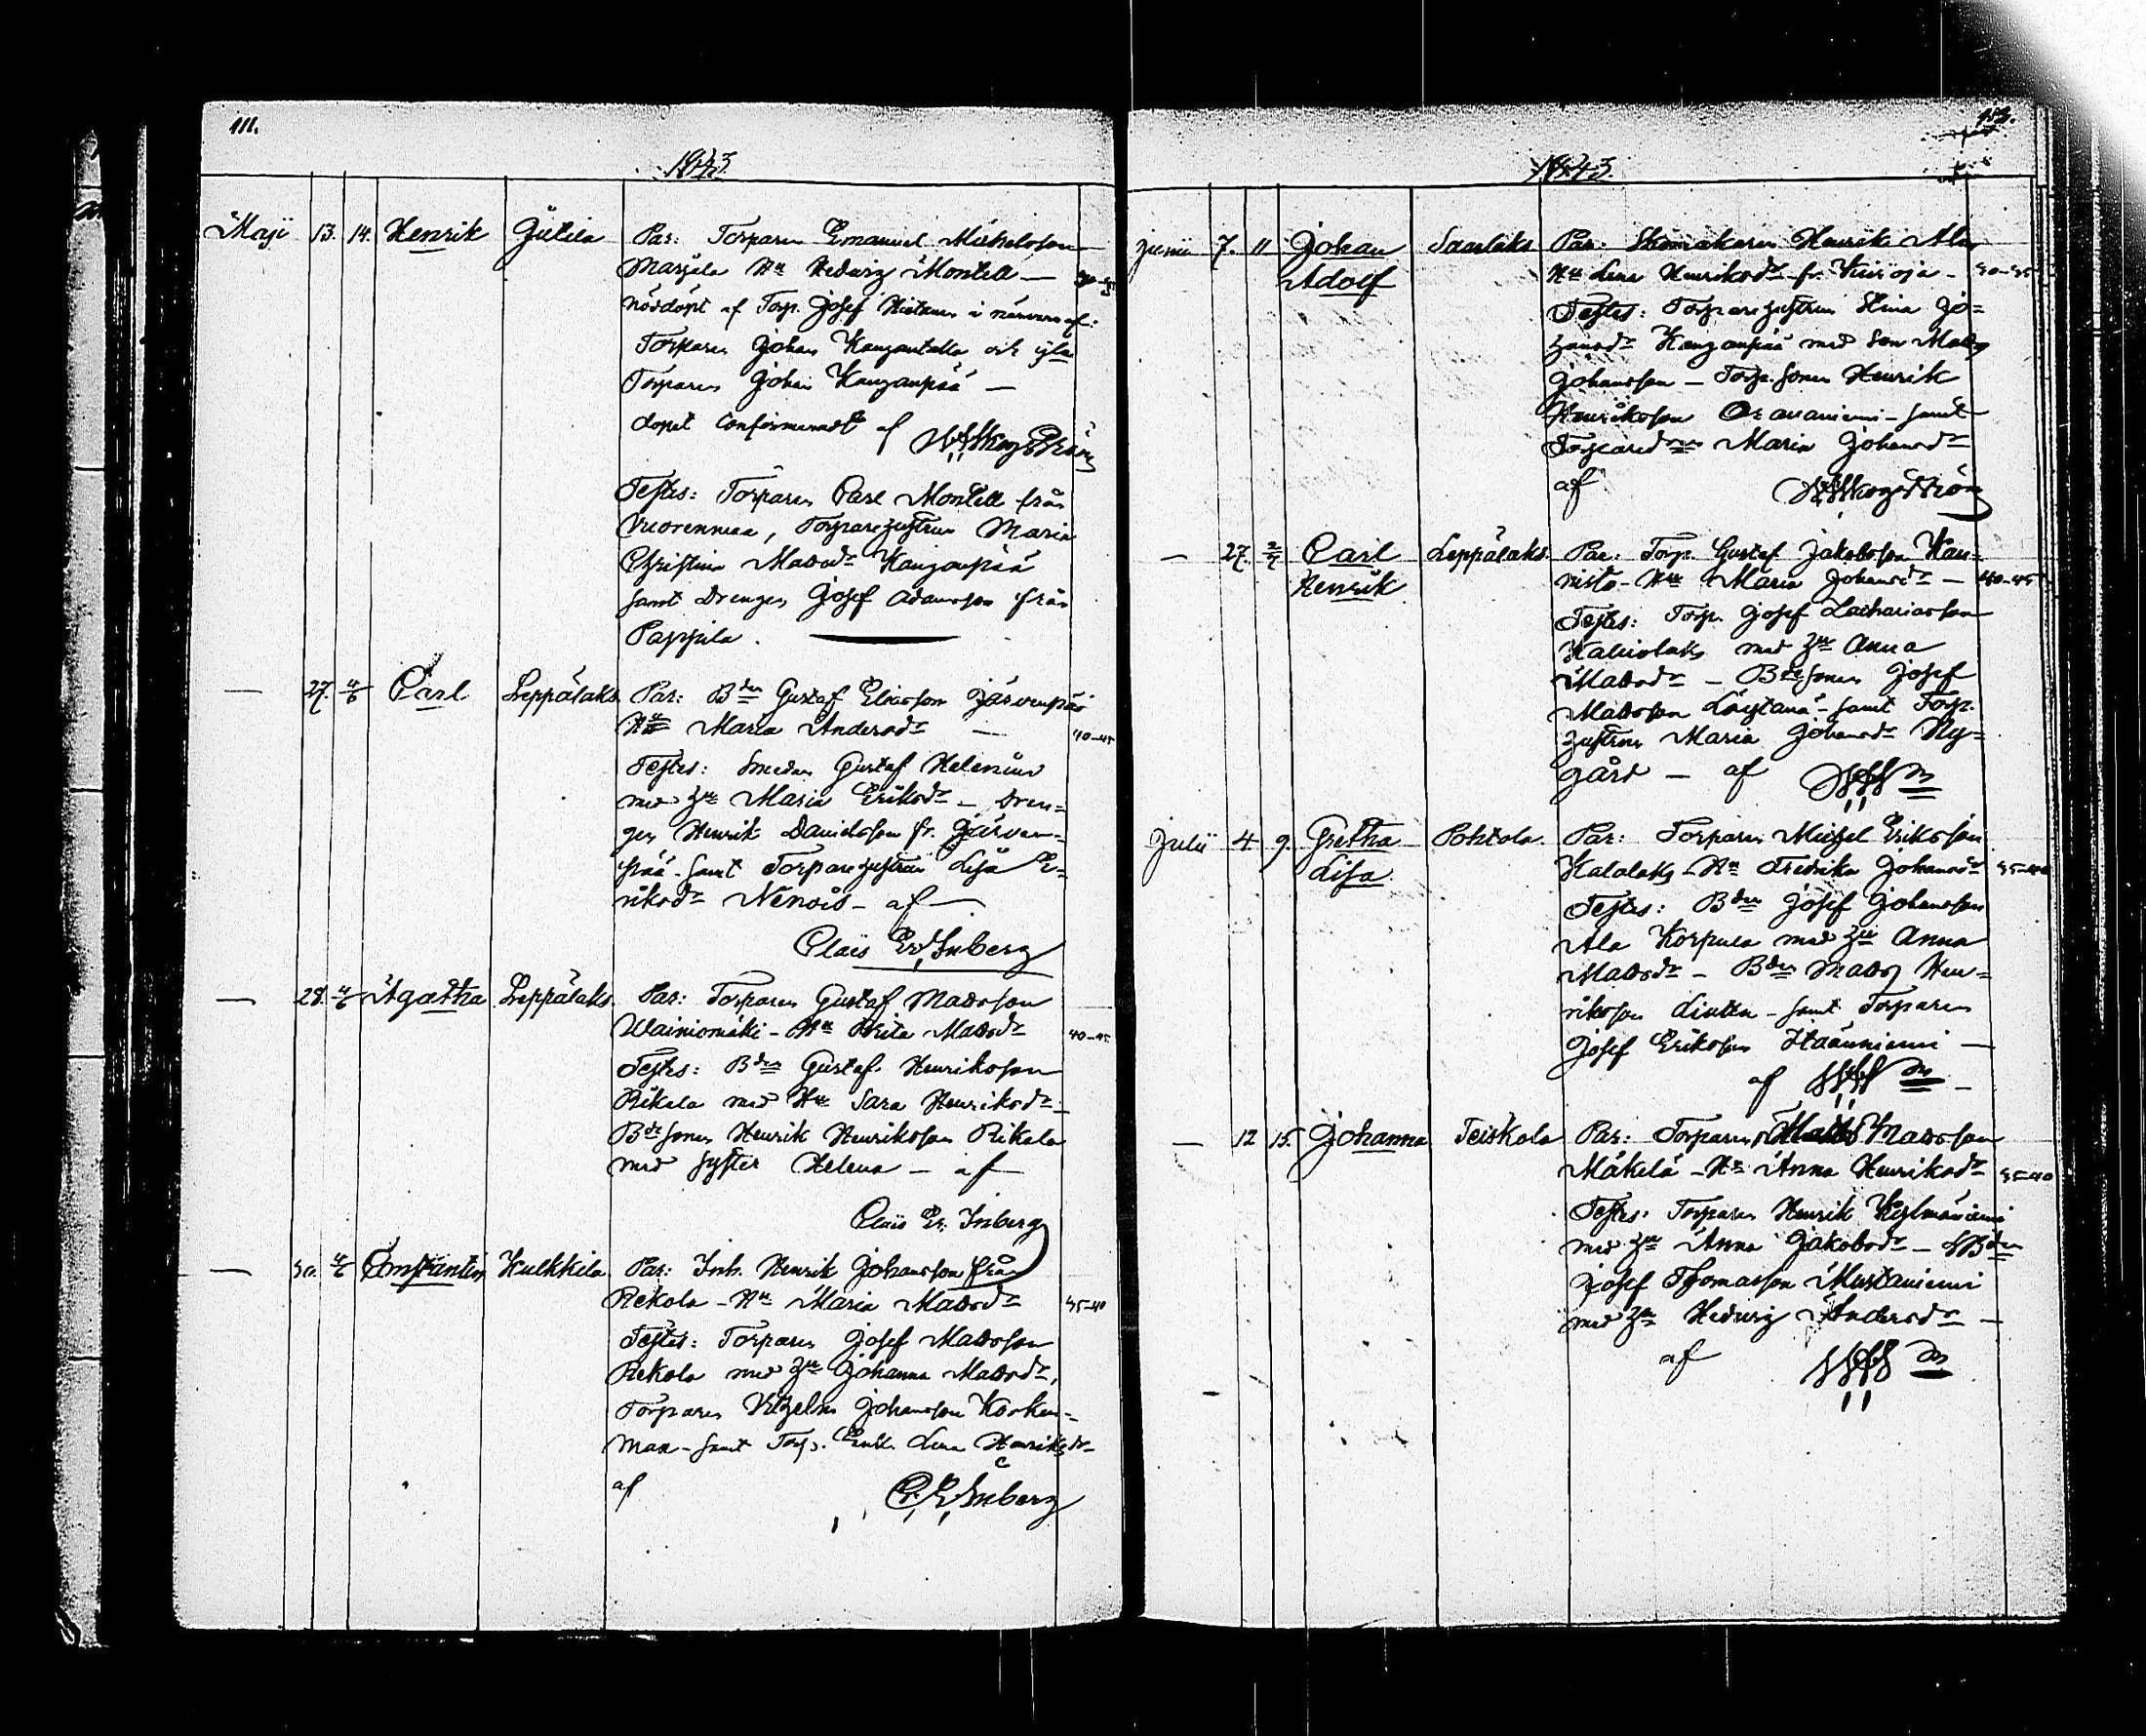 111.
1843.
Maji 13. 14. Henrik Jutila Par: Torparen Emanuel Michelsson
Marjala Hu Hedwig Montell —
nöddöpt af Torp. Josef Hietanen i närvaro af:
Torparen Johan Kangantalla och
Torparen Johan Kanganpää —
dopet confirmeradt af
Testes: Torparen Carl Montell från
Vuorenmaa, Torparehustrun Maria
Christina Matsdr Kanganpää
samt Drengen Josef Adamsson från
Pappila.
— 27. 4/6 Carl Leppälaks. Par: Bdn Gustaf Eliasson Järvenpää
Hu Maria Andersdr — 40-45
Testes: Smeden Gustaf Helenius
med Hu Maria Eriksdr — Dren=
gen Henrik Davidsson fr. Järven=
pää samt Torparehustrun Lisa E=
riksdr — af —
Claës Er. Inberg
— 28. 4/6 Agatha Leppälaks. Par: Torparen Gustaf Matsson
Wainiomäki — Hu Brita Matsdr 40-45
Testes: Bdn Gustaf Henriksson
Rikala med Hu Sara Henriksdr —
Bdesonen Henrik Henriksson Rikala
med syster Helena — af —
Claës Er. Inberg
— 30. 4/6 Constantin Kulkkila Par: Inh. Henrik Johansson från
Rekola — Hu Maria Matsdr 35-40
Testes: Torparen Josef Matsson
Rekola med Hu Johanna Matsdr,
Torparen Wilhelm Johansson Korken=
maa — samt Torp. Enk. Lena Henriksdr
af C. E. Inberg
1843.
Junii 7. 11 Johan Saarlaks Par: Skomakaren Henrik
Adolf Hu Lena Henriksdr fr. — 30-35
Testes: Torparehustrun Stina Jo=
hansdr Kanganpää med son Mats
Johansson — Torp. sonen Henrik
Henriksson Oravaniemi — samt
Maria Johansdr
af
— 27. 2/7 Carl Leppälaks. Par: Torp. Gustaf Jakobsson Kan=
Henrik nisto — Hu Maria Johansdr — 40-45
Testes: Torp. Josef Zachariasson
med Hu Anna
Matsdr — Bdesonen Josef
Matsson Löytänä — samt Torp.
hustrun Maria Johansdr Ny=
gård — af
Julii 4. 9. Gretha Pohtola. Par: Torparen Michel Eriksson
Lisa Kalalaks — Hu Fredrika Johansdr 35-40
Testes: Bdn Josef Johansson
Ala Korpula med Hu Anna
Matsdr — Bdn Mats Hen=
riksson — samt Torparen
Josef Eriksson Itäänniemi —
af
— 12 15. Johanna Teiskola Par: Torparen Matsson
Mäkelä — Hu Anna Henriksdr 35-40
Testes: Torparen Henrik Kylmäniemi
med Hu Anna Jakobsdr — Bdn
Josef Thomasson Mustaniemi
med Hu Hedwig Andersdr —
af